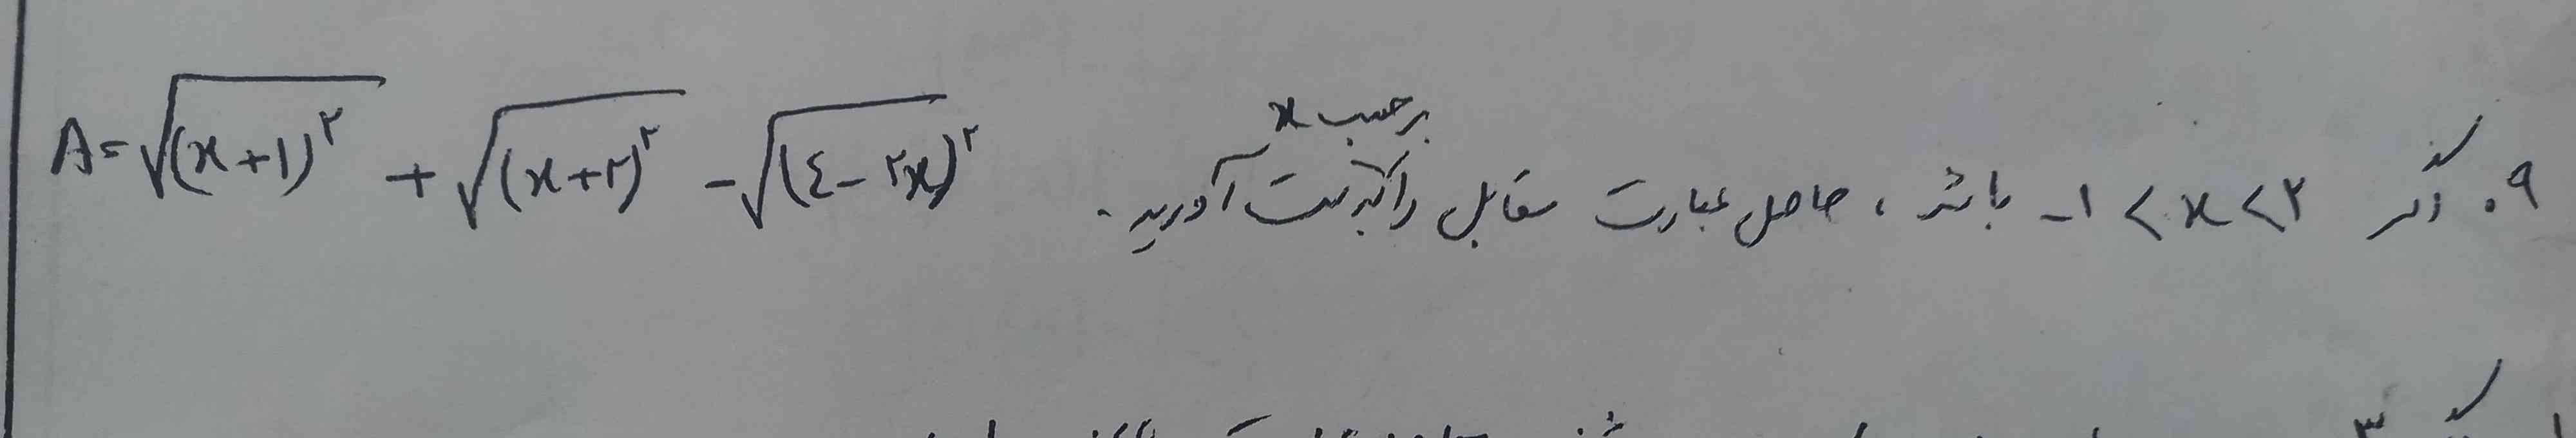 ۹. اگر -۱ < x < ۲ باشد، حاصل عبارت مقابل را بر حسب x بدست آورید.
A = √(x+۱)^۲ + √(x+۲)^۲ - √(٤-۲x)^۲